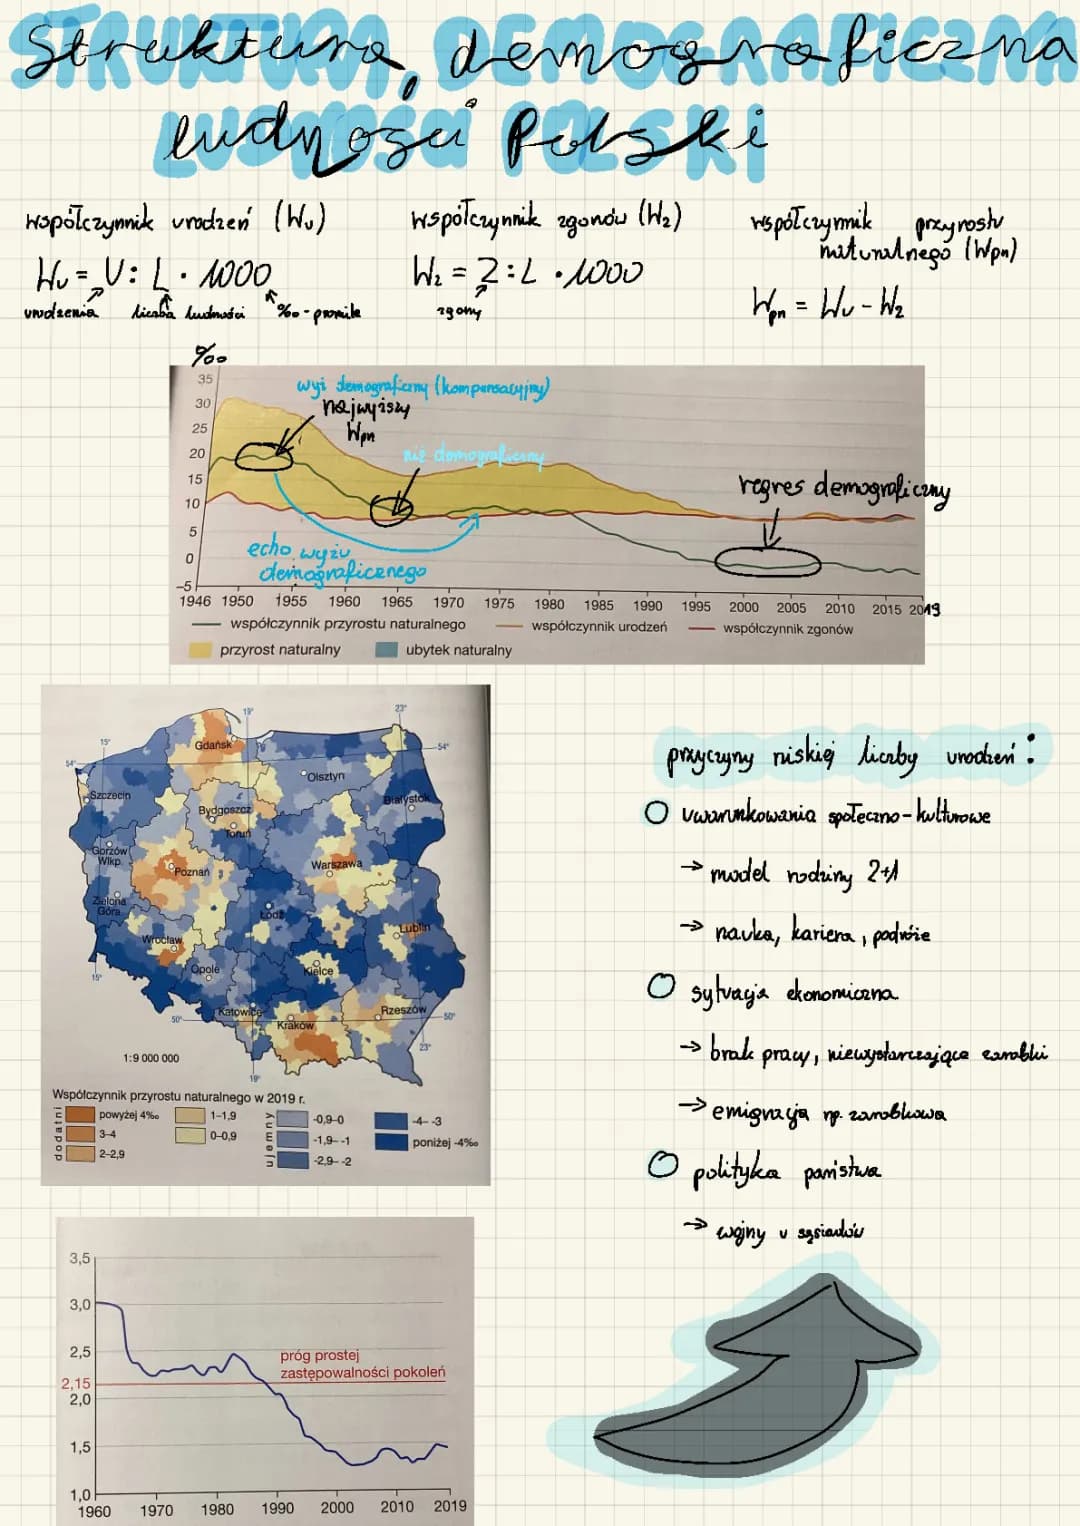 Struktura demograficzna
ludności Polski
współczynnik urodzeń (Wu)
Wu = U : L · 1000
urodzenia liczba ludności ‰ - promile
współczynnik zgonów (Wz)
Wz = Z : L · 1000
zgony
współczynnik przyrostu
naturalnego (Wpn)
Wpn = Wu - Wz
‰
35
30
25
20
15
10
5
0
-5
wyż demograficzny (kompensacyjny)
najwyższy
Wpn
niż demograficzny
regres demograficzny
echo wyżu
demograficznego
1946 1950 1955 1960 1965 1970 1975 1980 1985 1990 1995 2000 2005 2010 2015 2019
współczynnik przyrostu naturalnego współczynnik urodzeń współczynnik zgonów
przyrost naturalny ubytek naturalny
15° 19° 23°
54° 54°
Gdańsk
Olsztyn
Szczecin
Białystok
Bydgoszcz
Toruń
Gorzów
Wlkp.
Poznań
Warszawa
Zielona
Góra
Łódź
Lublin
Wrocław
Opole
Kielce
15°
Katowice
Kraków
Rzeszów
50° 50°
23°
19°
1:9 000 000
Współczynnik przyrostu naturalnego w 2019 r.
dodatni
powyżej 4‰
3–4
2–2,9
1–1,9
0–0,9
ujemny
-0,9–0
-1,9– -1
-2,9– -2
-4– -3
poniżej -4‰
przyczyny niskiej liczby urodzeń :
uwarunkowania społeczno-kulturowe
→ model rodziny 2+1
→ nauka, kariera, podróże
sytuacja ekonomiczna
→ brak pracy, niewystarczające zarobki
→ emigracja np. zarobkowa
polityka państwa
→ wojny u sąsiadów
3,5
3,0
2,5
2,15
2,0
1,5
1,0
próg prostej
zastępowalności pokoleń
1960 1970 1980 1990 2000 2010 2019